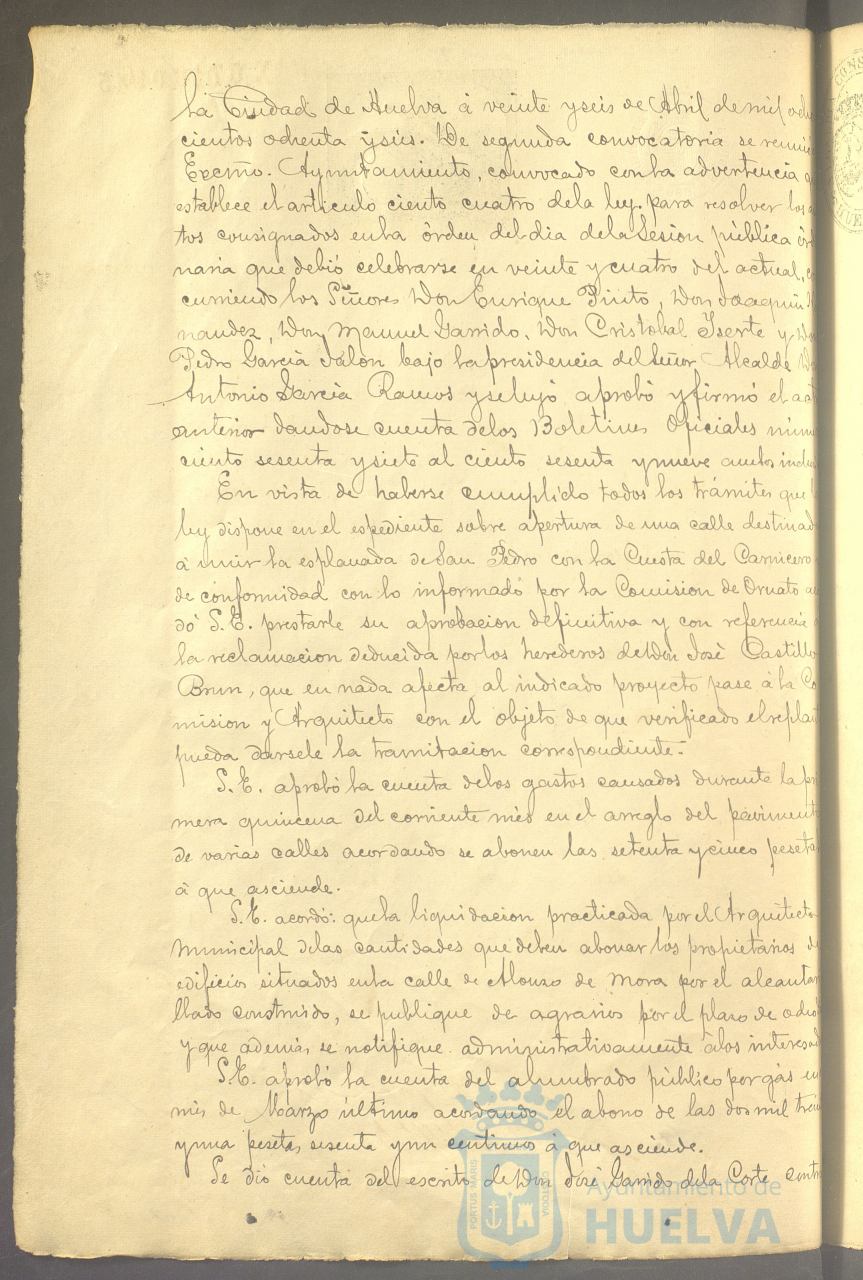 la Ciudad de Huelva á veinte y seis de Abril de mil ocho
cientos ochenta y seis. De segunda convocatoria se reunió
Excmo. Ayuntamiento, convocado con la advertencia q
establece el articulo ciento cuatro de la ley. para resolver los
tos consignados en la órden del dia de la Sesion pública órd
naria que debió celebrarse en veinte y cuatro del actual, co
curriendo los Señores Don Enrique Pinto, Don Joaquin
nandez, Don Manuel Garrido, Don Cristobal Iserte y Do
Pedro Garcia Jalon bajo la presidencia del Señor Alcalde Do
Antonio Garcia Ramos y se leyó aprobó y firmó el act
anterior dandose cuenta de los Boletines Oficiales núme
ciento sesenta y siete al ciento sesenta y nueve ambos inclu
En vista de haberse cumplido todos los trámites que l
ley dispone en el espediente sobre apertura de una calle destinad
á unir la esplanada de San Pedro con la Cuesta del Carnicero
de conformidad con lo informado por la Comision de Ornato a
dó S.E. prestarle su aprobacion definitiva y con referencia
la reclamacion deducida por los herederos de Don José Castillo
Brun, que en nada afecta al indicado proyecto pase á la Co
mision y Arquitecto con el objeto de que verificado el replan
pueda darsele la tramitacion correspondiente.
S.E. aprobó la cuenta de los gastos causados durante la pri
mera quincena del corriente mes en el arreglo del paviment
de varias calles acordando se abonen las setenta y cinco peseta
á que asciende.
S.E. acordó: que la liquidacion practicada por el Arquitecto
Municipal de las cantidades que deben abonar los propietarios de
edificios situados en la calle de Alonzo de Mora por el alcantar
llado construido, se publique de agravios por el plazo de ocho
y que además se notifique administrativamente á los interesad
S.E. aprobó la cuenta del alumbrado público por gas en
mes de Marzo último acordando el abono de las dos mil trein
y una peseta, sesenta y un centimos á que asciende.
Se dió cuenta del escrito de Don José Garrido de la Corte contr
PORTUS MARIS
CUSTODIA
Ayuntamiento de
HUELVA